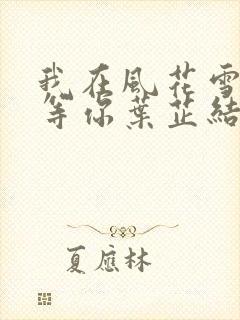 我在風花雪
等你葉芷結
夏應林